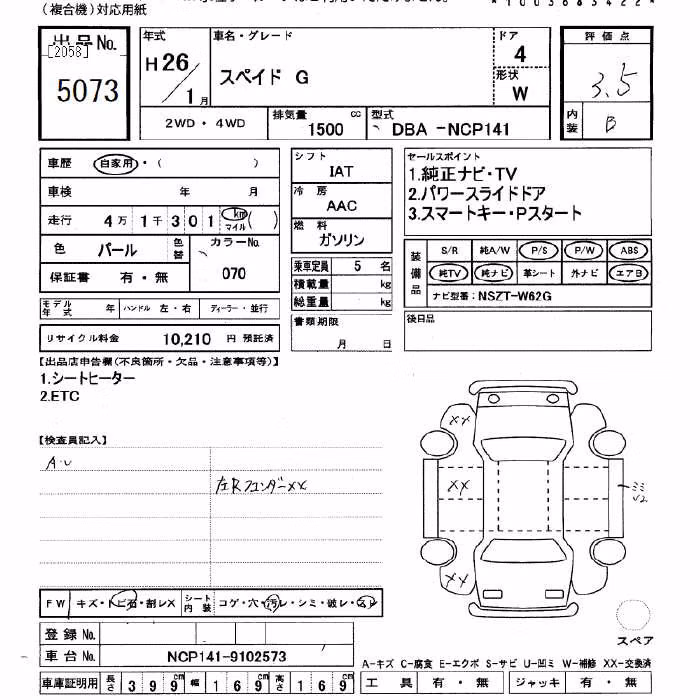 (複合機)対応用紙
*1003683422*
出品No.
[2058]
5073
年式
H 26/1月
車名・グレード
スペイド G
ドア
4
形状
W
評価点
3.5
内装
B
2WD・4WD
排気量
1500 cc
型式
DBA -NCP141
車歴 自家用・( )
車検 年 月
走行 4万1千301 km マイル ( )
色 パール 色替
カラーNo.
070
保証書 有・無
モデル年式 年 ハンドル 左・右 ディーラー・並行
リサイクル料金 10,210 円 預託済
シフト
IAT
冷房
AAC
燃料
ガソリン
乗車定員 5 名
積載量 kg
総重量 kg
書類期限
月 日
セールスポイント
1.純正ナビ・TV
2.パワースライドドア
3.スマートキー・Pスタート
装備品
S/R 純A/W P/S P/W ABS
純TV 純ナビ 革シート 外ナビ エアB
ナビ型番:NSZT-W62G
後日品
【出品店申告欄(不良箇所・欠品・注意事項等)】
1.シートヒーター
2.ETC
【検査員記入】
A・U
左Rフェンダーxx
XX
XX
XX
ミミ
U2
FW キズ・トビ石・割レX
シート内装 コゲ・穴・汚レ・シミ・破レ・スレ
登録No.
車台No. NCP141-9102573
車庫証明用 長さ 399cm 幅 169cm 高さ 169cm
スペア
A-キズ C-腐食 E-エクボ S-サビ U-凹ミ W-補修 XX-交換済
工具 有・無 ジャッキ 有・無